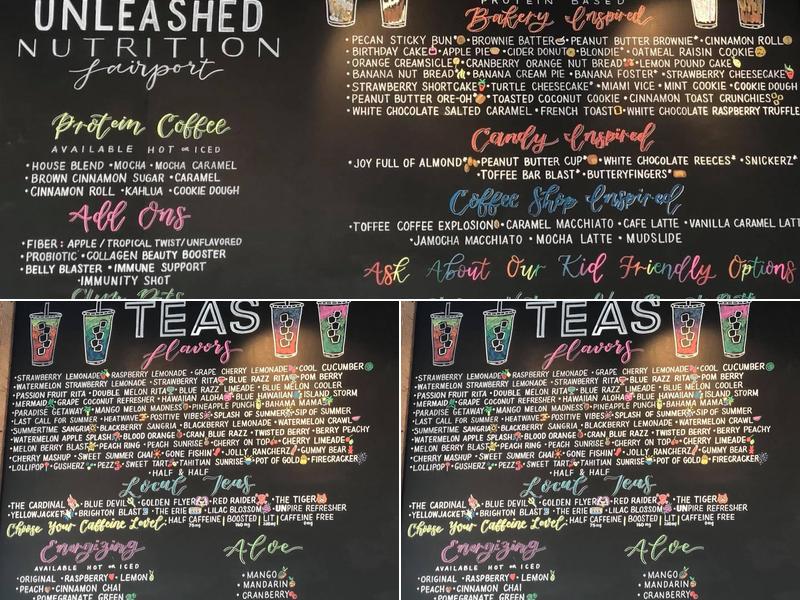 UNLEASHED
NUTRITION
fairport
Protein Coffee
AVAILABLE HOT or ICED
•HOUSE BLEND •MOCHA •MOCHA CARAMEL
•BROWN CINNAMON SUGAR •CARAMEL
•CINNAMON ROLL •KAHLUA •COOKIE DOUGH
Add Ons
•FIBER: APPLE / TROPICAL TWIST/UNFLAVORED
•PROBIOTIC •COLLAGEN BEAUTY BOOSTER
•BELLY BLASTER •IMMUNE SUPPORT
•IMMUNITY SHOT
PROTEIN BASED
Bakery Inspired
•PECAN STICKY BUN* •BROWNIE BATTER •PEANUT BUTTER BROWNIE* •CINNAMON ROLL
•BIRTHDAY CAKE •APPLE PIE •CIDER DONUT •BLONDIE* •OATMEAL RAISIN COOKIE
•ORANGE CREAMSICLE •CRANBERRY ORANGE NUT BREAD* •LEMON POUND CAKE
•BANANA NUT BREAD* •BANANA CREAM PIE •BANANA FOSTER* •STRAWBERRY CHEESECAKE
•STRAWBERRY SHORTCAKE •TURTLE CHEESECAKE* •MIAMI VICE •MINT COOKIE •COOKIE DOUGH
•PEANUT BUTTER ORE-OH* •TOASTED COCONUT COOKIE •CINNAMON TOAST CRUNCHIES
•WHITE CHOCOLATE SALTED CARAMEL •FRENCH TOAST •WHITE CHOCOLATE RASPBERRY TRUFFLE
Candy Inspired
•JOY FULL OF ALMOND* •PEANUT BUTTER CUP* •WHITE CHOCOLATE REECES* •SNICKERZ*
•TOFFEE BAR BLAST* •BUTTERYFINGERS*
Coffee Shop Inspired
•TOFFEE COFFEE EXPLOSION •CARAMEL MACCHIATO •CAFE LATTE •VANILLA CARAMEL LATT
•JAMOCHA MACCHIATO •MOCHA LATTE •MUDSLIDE
Ask About Our Kid Friendly Options
TEAS
flavors
•STRAWBERRY LEMONADE •RASPBERRY LEMONADE •GRAPE CHERRY LEMONADE •COOL CUCUMBER
•WATERMELON STRAWBERRY LEMONADE •STRAWBERRY RITA •BLUE RAZZ LIMEADE •POM BERRY
•PASSION FRUIT RITA •DOUBLE MELON RITA •BLUE RAZZ LIMEADE •BLUE MELON COOLER
•MERMAID •GRAPE COCONUT REFRESHER •HAWAIIAN ALOHA •BLUE HAWAIIAN •ISLAND STORM
•PARADISE GETAWAY •MANGO MELON MADNESS •PINEAPPLE PUNCH •BAHAMA MAMA
•LAST CALL FOR SUMMER •HEATWAVE •POSITIVE VIBES •SPLASH OF SUMMER •SIP OF SUMMER
•SUMMERTIME SANGRIA •BLACKBERRY SANGRIA •BLACKBERRY LIMEADE •WATERMELON CRAWL
•WATERMELON APPLE SPLASH •BLOOD ORANGE •CRAN BLUE RAZZ •TWISTED BERRY •BERRY PEACHY
•MELON BERRY BLAST •PEACH RING •PEACH SUNRISE •CHERRY ON TOP •CHERRY LIMEADE
•CHERRY MASHUP •SWEET SUMMER CHAI •GONE FISHIN' •JOLLY RANCHERZ •GUMMY BEAR
•LOLLIPOP •GUSHERZ •PEZZ •SWEET TART •TAHITIAN SUNRISE •POT OF GOLD •FIRECRACKER
•HALF & HALF
Local Teas
•THE CARDINAL •BLUE DEVIL •GOLDEN FLYER •RED RAIDER •THE TIGER
•YELLOWJACKET •BRIGHTON BLAST •LILAC BLOSSOM •UNPIRE REFRESHER
Choose Your Caffeine Level: HALF CAFFEINE | BOOSTED | LIT | CAFFEINE FREE
75mg 160 mg 0mg
Energizing
AVAILABLE HOT or ICED
•ORIGINAL •RASPBERRY •LEMON
•PEACH •CINNAMON CHAI
•POMEGRANATE GREEN
Aloe
•MANGO
•MANDARIN
•CRANBERRY
TEAS
flavors
•STRAWBERRY LEMONADE •RASPBERRY LEMONADE •GRAPE CHERRY LEMONADE •COOL CUCUMBER
•WATERMELON STRAWBERRY LEMONADE •STRAWBERRY RITA •BLUE RAZZ LIMEADE •POM BERRY
•PASSION FRUIT RITA •DOUBLE MELON RITA •BLUE RAZZ LIMEADE •BLUE MELON COOLER
•MERMAID •GRAPE COCONUT REFRESHER •HAWAIIAN ALOHA •BLUE HAWAIIAN •ISLAND STORM
•PARADISE GETAWAY •MANGO MELON MADNESS •PINEAPPLE PUNCH •BAHAMA MAMA
•LAST CALL FOR SUMMER •HEATWAVE •POSITIVE VIBES •SPLASH OF SUMMER •SIP OF SUMMER
•SUMMERTIME SANGRIA •BLACKBERRY SANGRIA •BLACKBERRY LIMEADE •WATERMELON CRAWL
•WATERMELON APPLE SPLASH •BLOOD ORANGE •CRAN BLUE RAZZ •TWISTED BERRY •BERRY PEACHY
•MELON BERRY BLAST •PEACH RING •PEACH SUNRISE •CHERRY ON TOP •CHERRY LIMEADE
•CHERRY MASHUP •SWEET SUMMER CHAI •GONE FISHIN' •JOLLY RANCHERZ •GUMMY BEAR
•LOLLIPOP •GUSHERZ •PEZZ •SWEET TART •TAHITIAN SUNRISE •POT OF GOLD •FIRECRACKER
•HALF & HALF
Local Teas
•THE CARDINAL •BLUE DEVIL •GOLDEN FLYER •RED RAIDER •THE TIGER
•YELLOWJACKET •BRIGHTON BLAST •LILAC BLOSSOM •UNPIRE REFRESHER
Choose Your Caffeine Level: HALF CAFFEINE | BOOSTED | LIT | CAFFEINE FREE
75mg 160 mg 0mg
Energizing
AVAILABLE HOT or ICED
•ORIGINAL •RASPBERRY •LEMON
•PEACH •CINNAMON CHAI
•POMEGRANATE GREEN
Aloe
•MANGO
•MANDARIN
•CRANBERRY